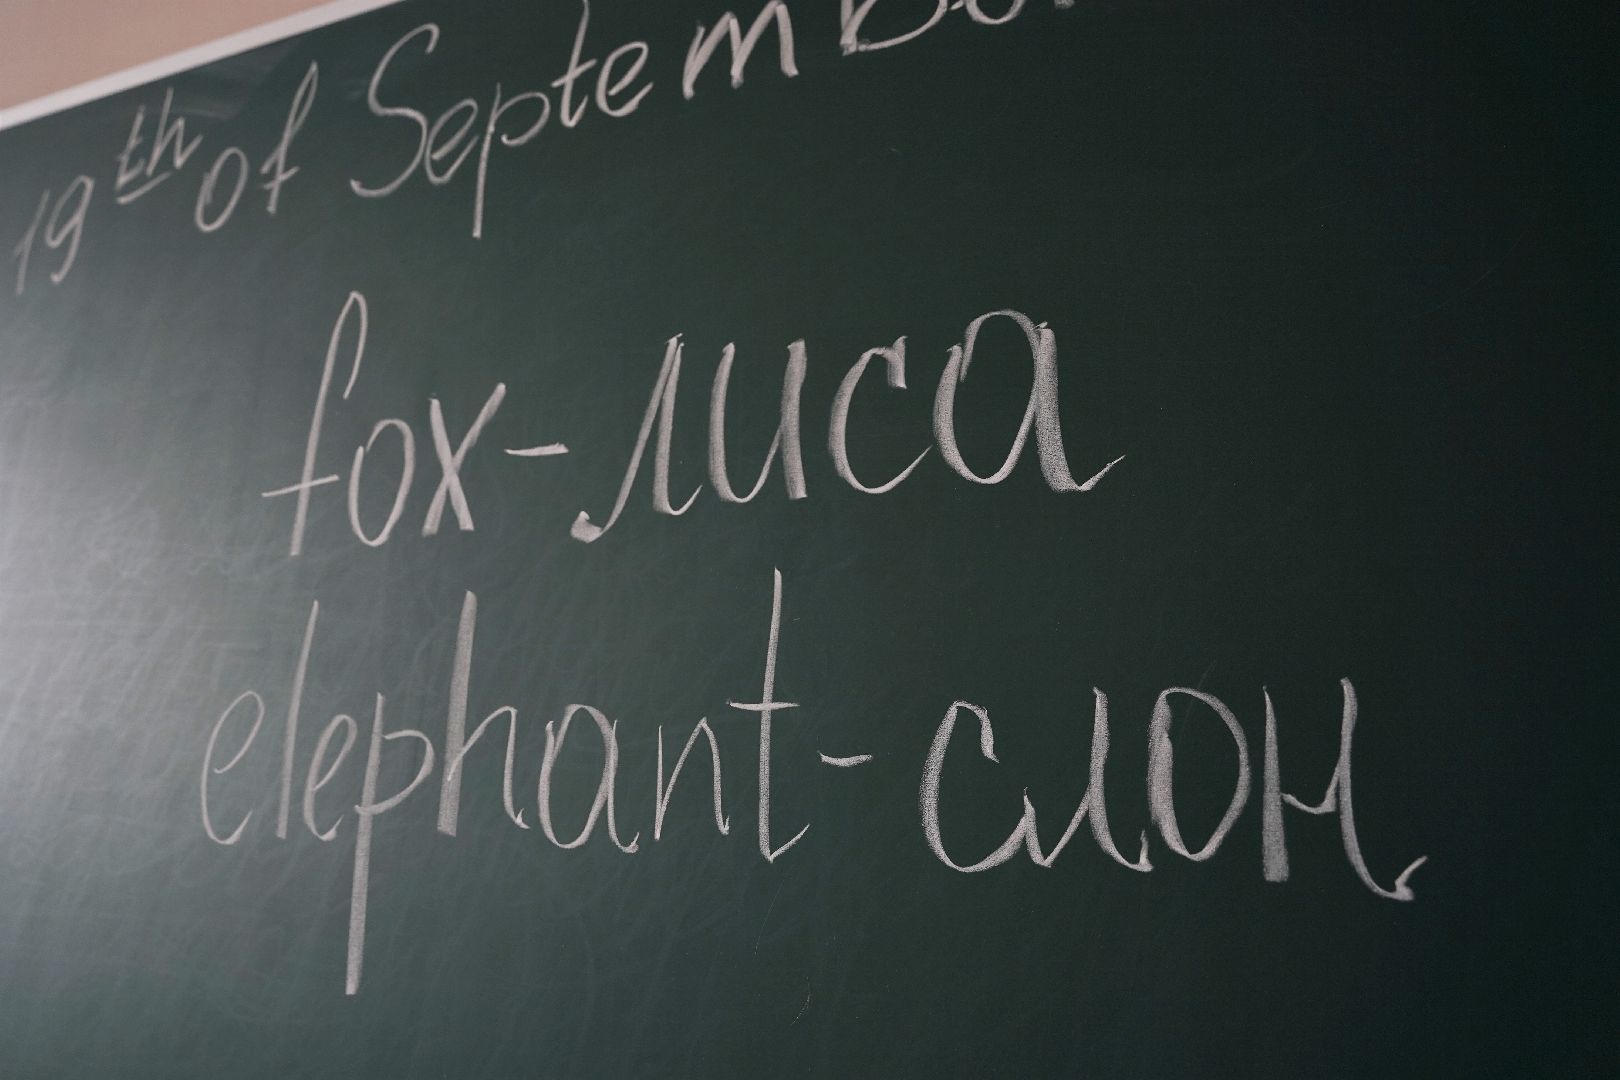 19th of September
fox - лиса
elephant - слон